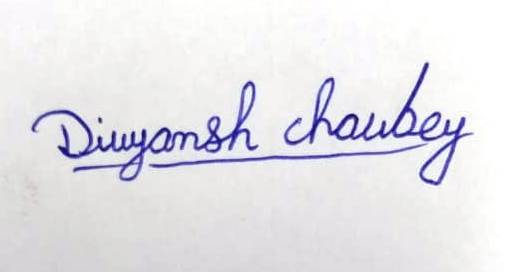 Divyansh chaubey